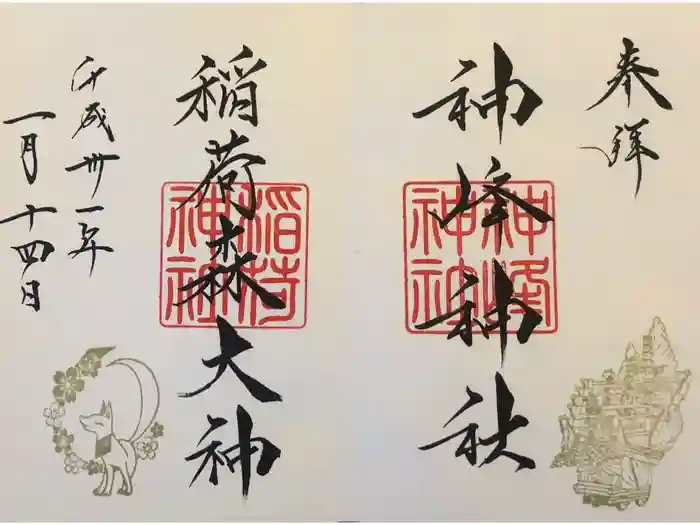 奉拝
神峰神社
神峰神社
稲荷森大神
稲荷神社
平成卅一年
一月十四日